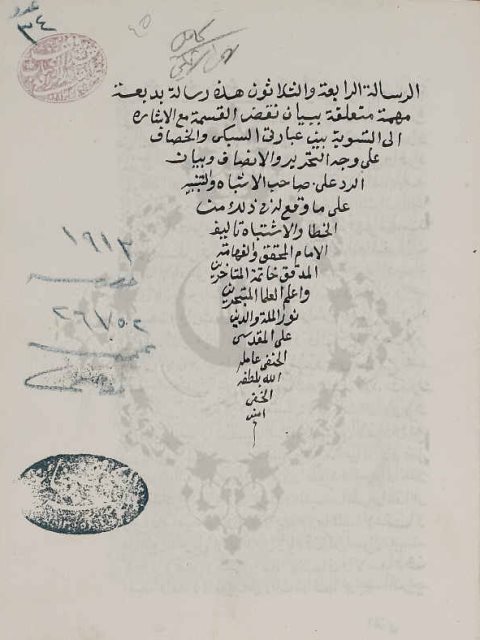 عدد
٣٤
٤٥
الرسالة الرابعة والثلاثون هذه رسالة بديعة
مهمة متعلقة ببيان نقض القسمة مع الاشارة
الى التسوية بين عبارتي السبكي والخصاف
على وجه التحرير والانصاف وبيان
الرد على صاحب الاشباه والتنبيه
على ما وقع له في ذلك من
الخطا والاشتباه تاليف
الامام المحقق والفهامة
المدقق خاتمة المتاخرين
واعلم العلما المتبحرين
نور الملة والدين
على المقدسى
الحنفى عامله
الله بلطفه
الخفى
امين
١٩١٣
٢٦٧٥٢